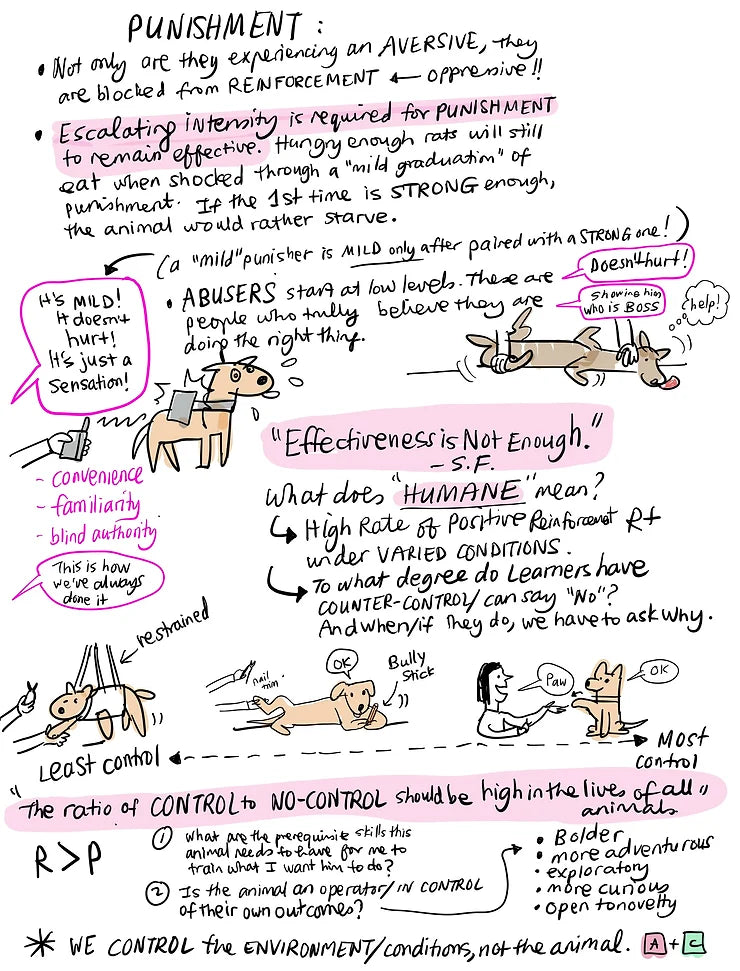 PUNISHMENT :
• Not only are they experiencing an AVERSIVE, they
are blocked from REINFORCEMENT ← oppressive!!
• Escalating intensity is required for PUNISHMENT
to remain effective. Hungry enough rats will still
eat when shocked through a "mild graduation" of
punishment. If the 1st time is STRONG enough,
the animal would rather starve.
(a "mild" punisher is MILD only after paired with a STRONG one!)
It's MILD!
It doesn't
hurt!
It's just a
sensation!
• ABUSERS start at low levels. These are
people who truly believe they are
doing the right thing.
Doesn't hurt!
Showing him
who is BOSS
help!
"Effectiveness is Not Enough."
- S.F.
- convenience
- familiarity
- blind authority
This is how
we've always
done it
What does "HUMANE" mean?
↳ High Rate of Positive Reinforcement R+
under VARIED CONDITIONS.
↳ To what degree do Learners have
COUNTER-CONTROL/can say "No"?
And when/if they do, we have to ask why.
restrained
nail
trim
OK
Bully
Stick
Paw
OK
Least control
Most
control
"The ratio of CONTROL to NO-CONTROL should be high in the lives of all
animals"
R > P
① What are the prerequisite skills this
animal needs to have for me to
train what I want him to do?
② Is the animal an operator/IN CONTROL
of their own outcomes?
• Bolder
• more adventurous
• exploratory
• more curious
• open to novelty
* WE CONTROL the ENVIRONMENT/conditions, not the animal. A + C